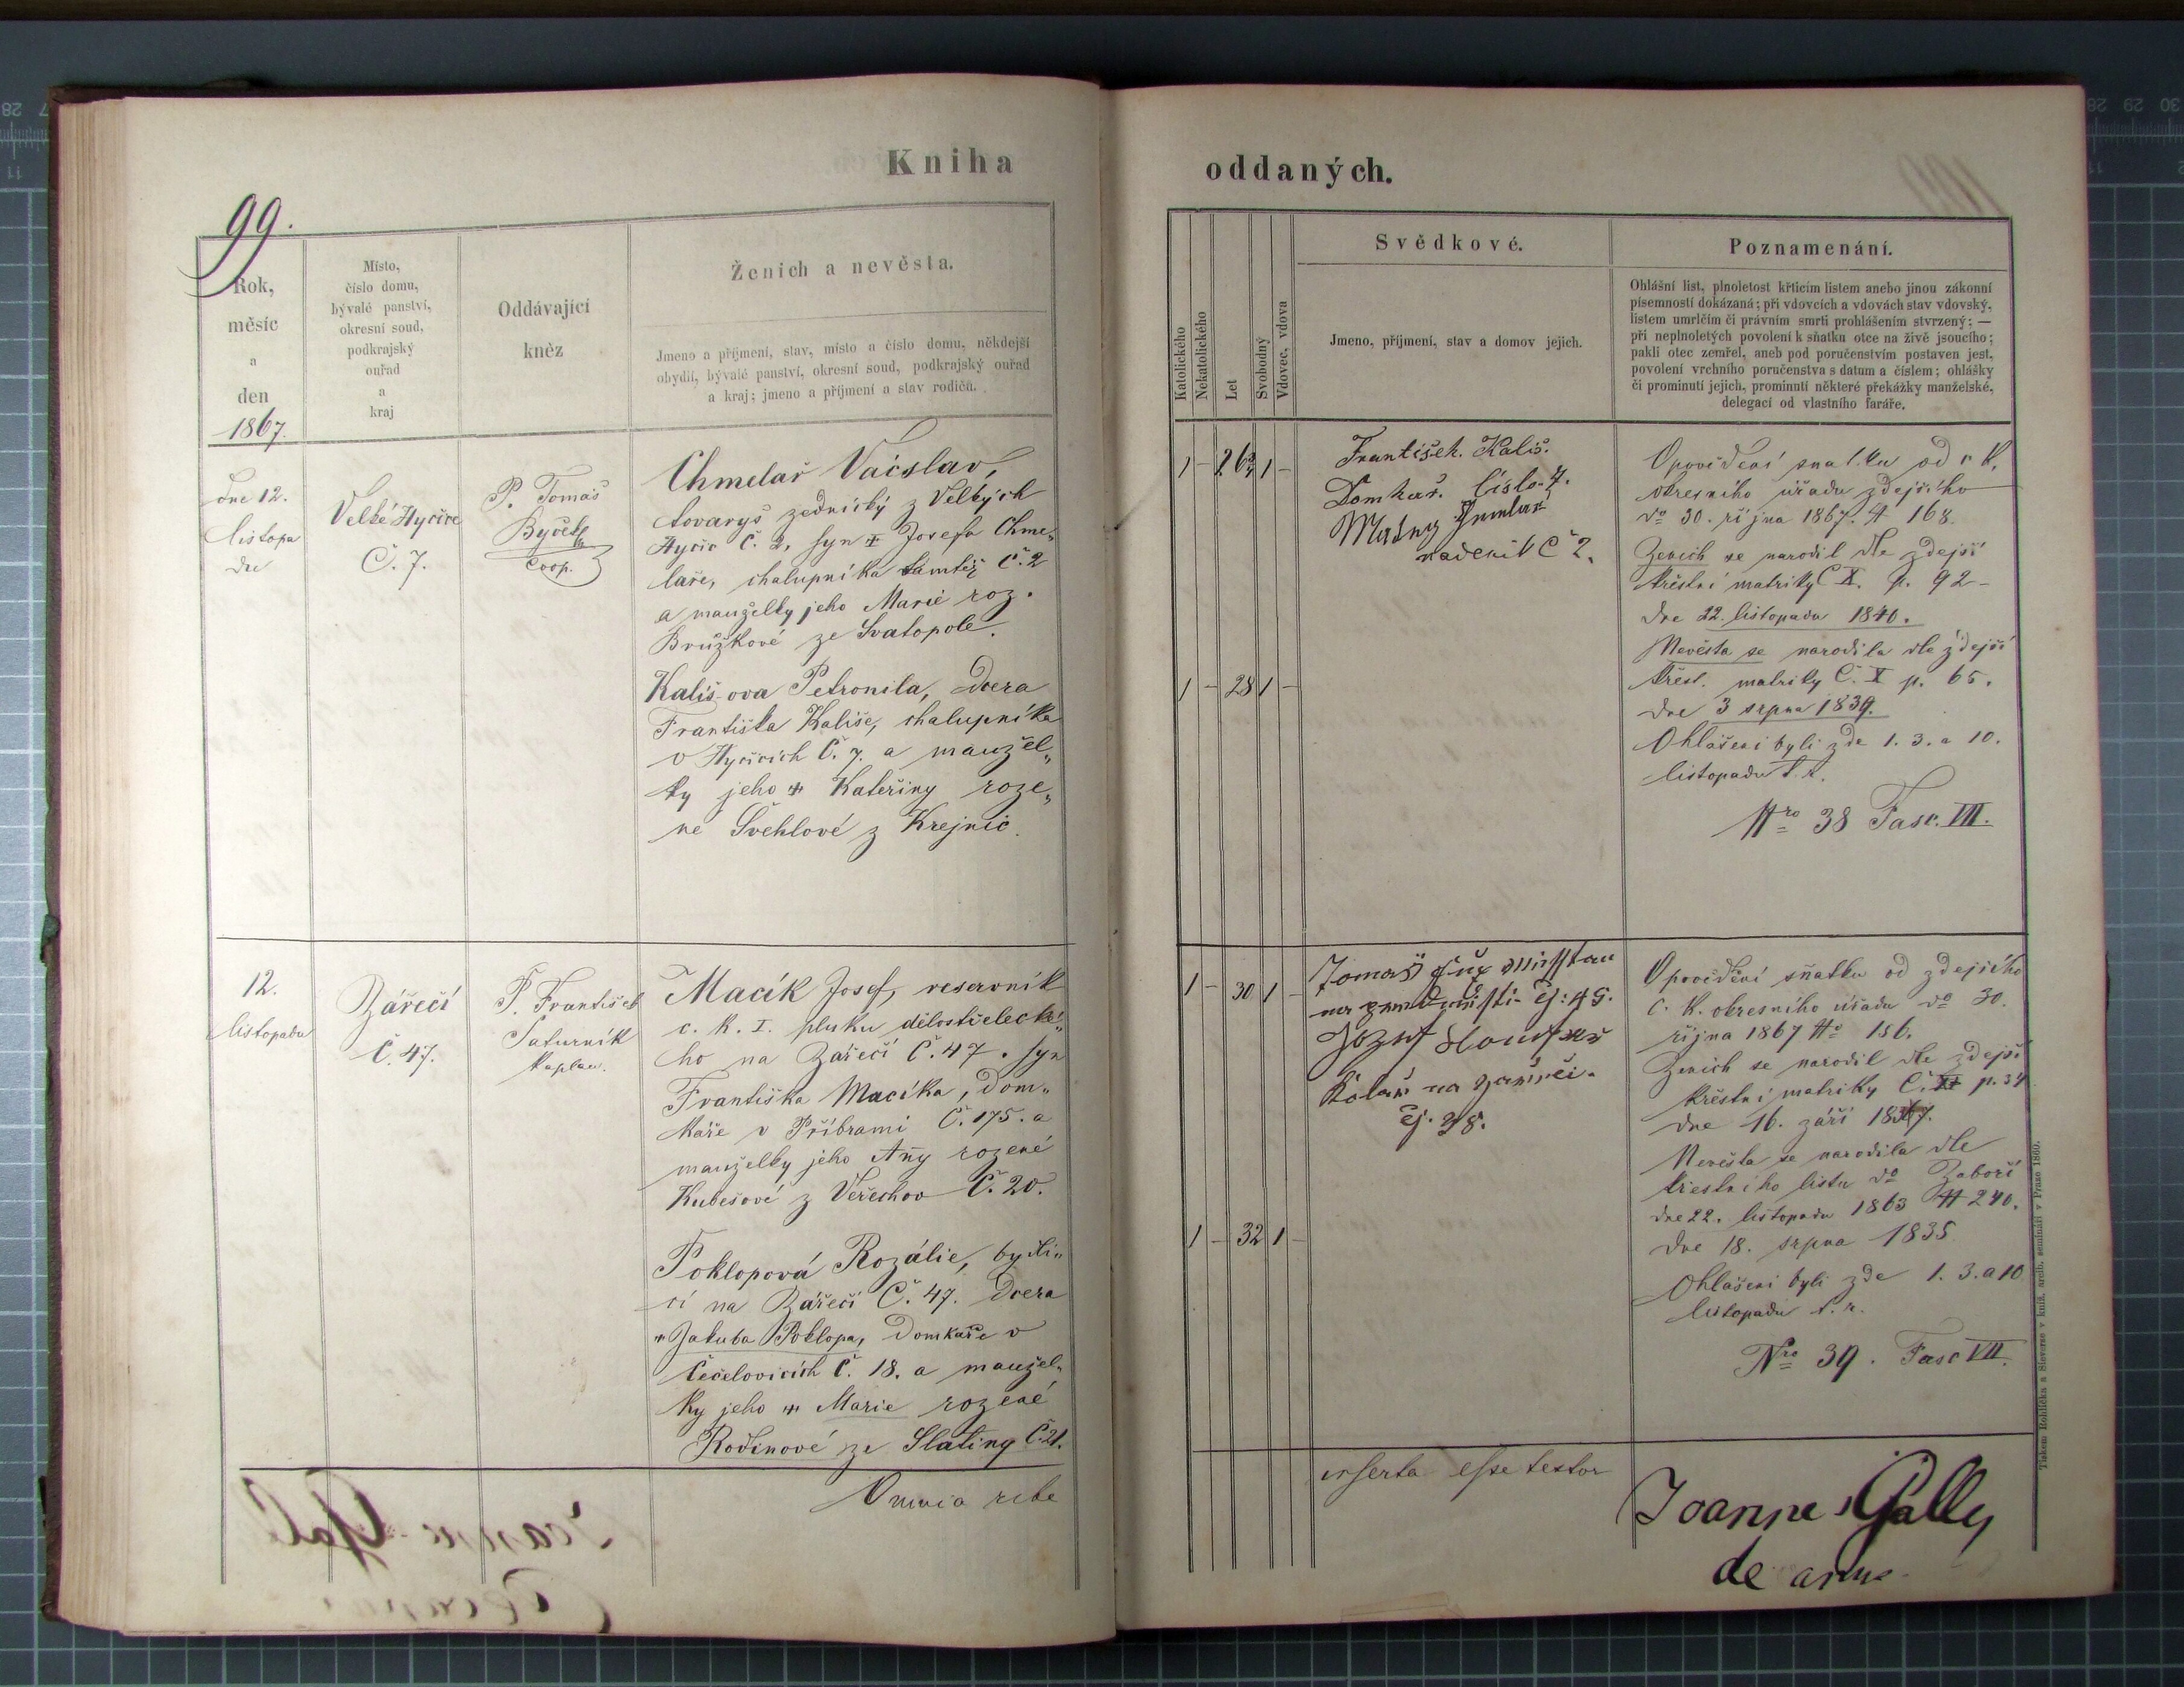 Kniha
oddaných.
99.
Rok,
měsíc
a
den
1867.
Místo,
číslo domu,
bývalé panství,
okresní soud,
podkrajský
ouřad
a
kraj
Oddávající
kněz
Ženich a nevěsta.
Jmeno a příjmení, stav, místo a číslo domu, někdejší
obydlí, bývalé panství, okresní soud, podkrajský ouřad
a kraj; jmeno a příjmení a stav rodičů.
Katolického
Nekatolického
Let
Svobodný
Vdovec, vdova
Svědkové.
Jmeno, příjmení, stav a domov jejich.
Poznamenání.
Ohlášní list, plnoletost křticím listem anebo jinou zákonní
písemností dokázaná; při vdovcích a vdovách stav vdovský,
listem umrlčím či právním smrti prohlášením stvrzený; —
při neplnoletých povolení k sňatku otce na živě jsoucího;
pakli otec zemřel, aneb pod poručenstvím postaven jest,
povolení vrchního poručenstva s datum a číslem; ohlášky
či prominutí jejich, prominutí některé překážky manželské,
delegací od vlastního faráře.
dne 12.
listopa
du
Velké Hyčice
Č. 7.
P. Tomáš
Coop.
Chmelař Václav,
tovaryš zednický z Velkých
Hyčic Č. 2, syn Josefa Chme„
laře, chalupníka tamtéž Č. 2
a manželky jeho Marie roz.
Brůžkové ze Svatopole.
Kališova Petronila, dcera
Františka Kališe, chalupníka
v Hyčicích Č. 7. a manžel„
ky jeho Kateřiny roze„
né Švehlové z Krejnic.
1 – 26 1 –
1 – 28 1 –
František Kališ.
Domkař. číslo 7.
nádeník Č 2.
Opovědění snatku od c k.
okresního úřadu zdejšího
do 30. října 1867. N 168.
Ženich se narodil dle zdejší
křestní matriky Č X. p. 92 –
dne 22. listopadu 1840.
Nevěsta se narodila dle zdejší
křest. matriky Č. X p. 65.
dne 3 srpna 1839.
Ohlášeni byli zde 1. 3. a 10.
listopadu t. r.
Nro 38 Fasc. VII.
12.
listopadu
Zářečí
Č. 47.
P. František
Saturník
kaplan.
Macík Josef, reservník
c. k. I. pluku dělostřelecké„
ho na Zářečí Č. 47. syn
Františka Macíka, dom„
káře v Příbrami Č. 175. a
manželky jeho Anny rozené
Kubešové z Veřechov Č. 20.
Poklopová Rozálie, bydlí„
cí na Zářečí Č. 47. dcera
Jakuba Poklopa, domkaře v
Čečelovicích Č. 18. a manžel„
ky jeho Marie rozené
Rodinové ze Slatiny Č. 21.
1 – 30 1 –
1 – 32 1 –
Tomáš
čj: 45.
Jozef
Kolář na zářečí.
čj. 38.
Opovědění sňatku od zdejšího
c. k. okresního úřadu do 30.
října 1867 No 186.
Ženich se narodil dle zdejší
křestní matriky Č. p. 34
dne 16. září
Nevěsta se narodila dle
křestního listu do Zaboří
dne 22. listopadu 1863 N 240.
dne 18. srpna 1835
Ohlášeni byli zde 1. 3. a 10
listopadu t. r.
Nro 39. Fasc VII.
Omnia rite
inserta esse testor
Joannes Gally
Tiskem Rohlíčka a Sieverse v kníž. arcib. semináři v Praze 1860.